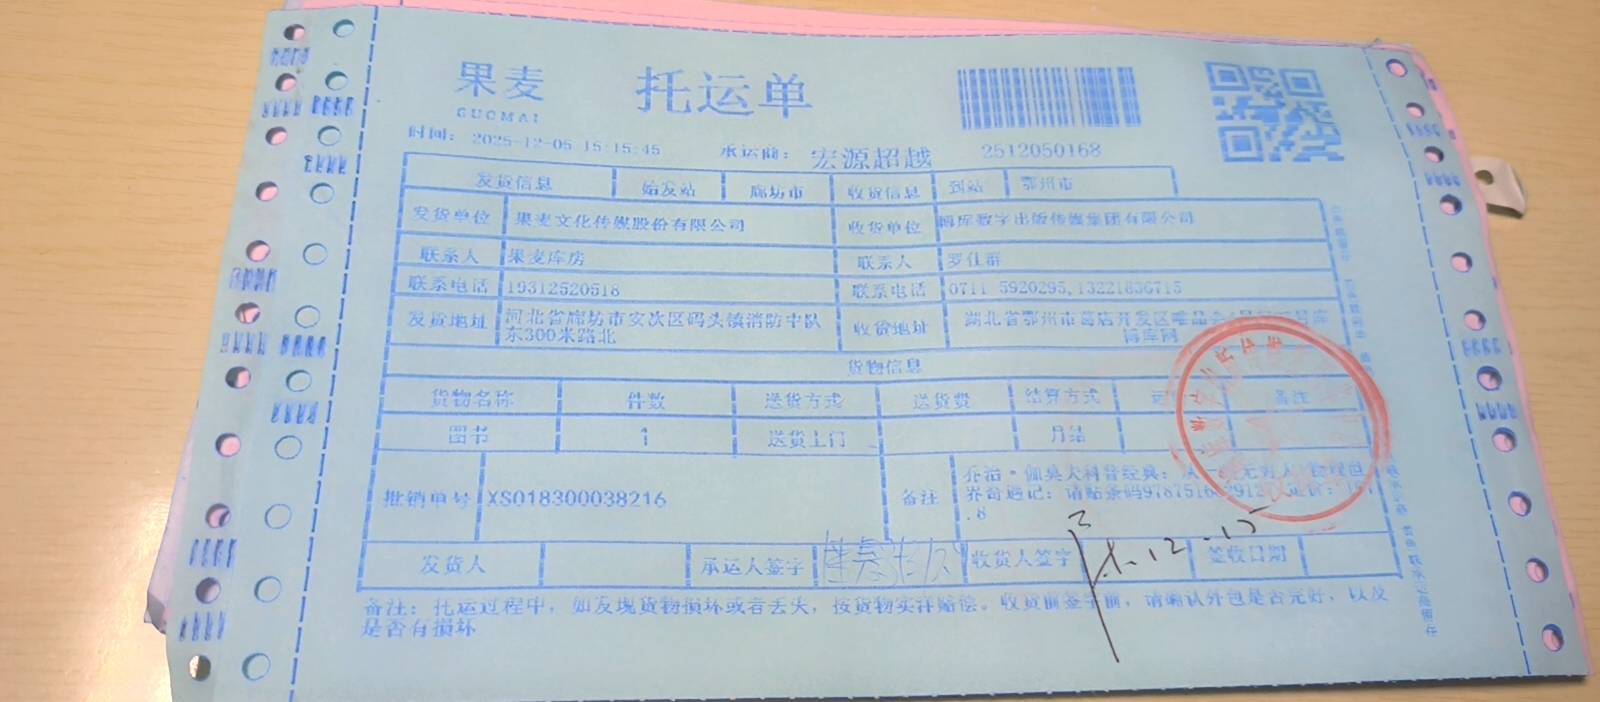 果麦 托运单
GUOMAI
时间: 2025-12-05 15:15:45 承运商: 宏源超越 2512050168
发货信息 始发站 廊坊市 收货信息 到站 鄂州市
发货单位 果麦文化传媒股份有限公司 收货单位 博库数字出版传媒集团有限公司
联系人 果麦库房 联系人 罗仕群
联系电话 19312520518 联系电话 0711-5920295,13221836715
发货地址 河北省廊坊市安次区码头镇消防中队东300米路北 收货地址 湖北省鄂州市葛店开发区唯品会 博库网
货物信息
货物名称 件数 送货方式 送货费 结算方式 备注
图书 1 送货上门 月结
批销单号 XS018300038216 备注 乔治·伽莫夫科普经典:
界奇遇记: 请贴条码
.8
发货人 承运人签字 收货人签字 签收日期
12.15
备注: 托运过程中, 如发现货物损坏或者丢失, 按货物实洋赔偿。收货前签字前, 请确认外包是否完好, 以及
是否有损坏